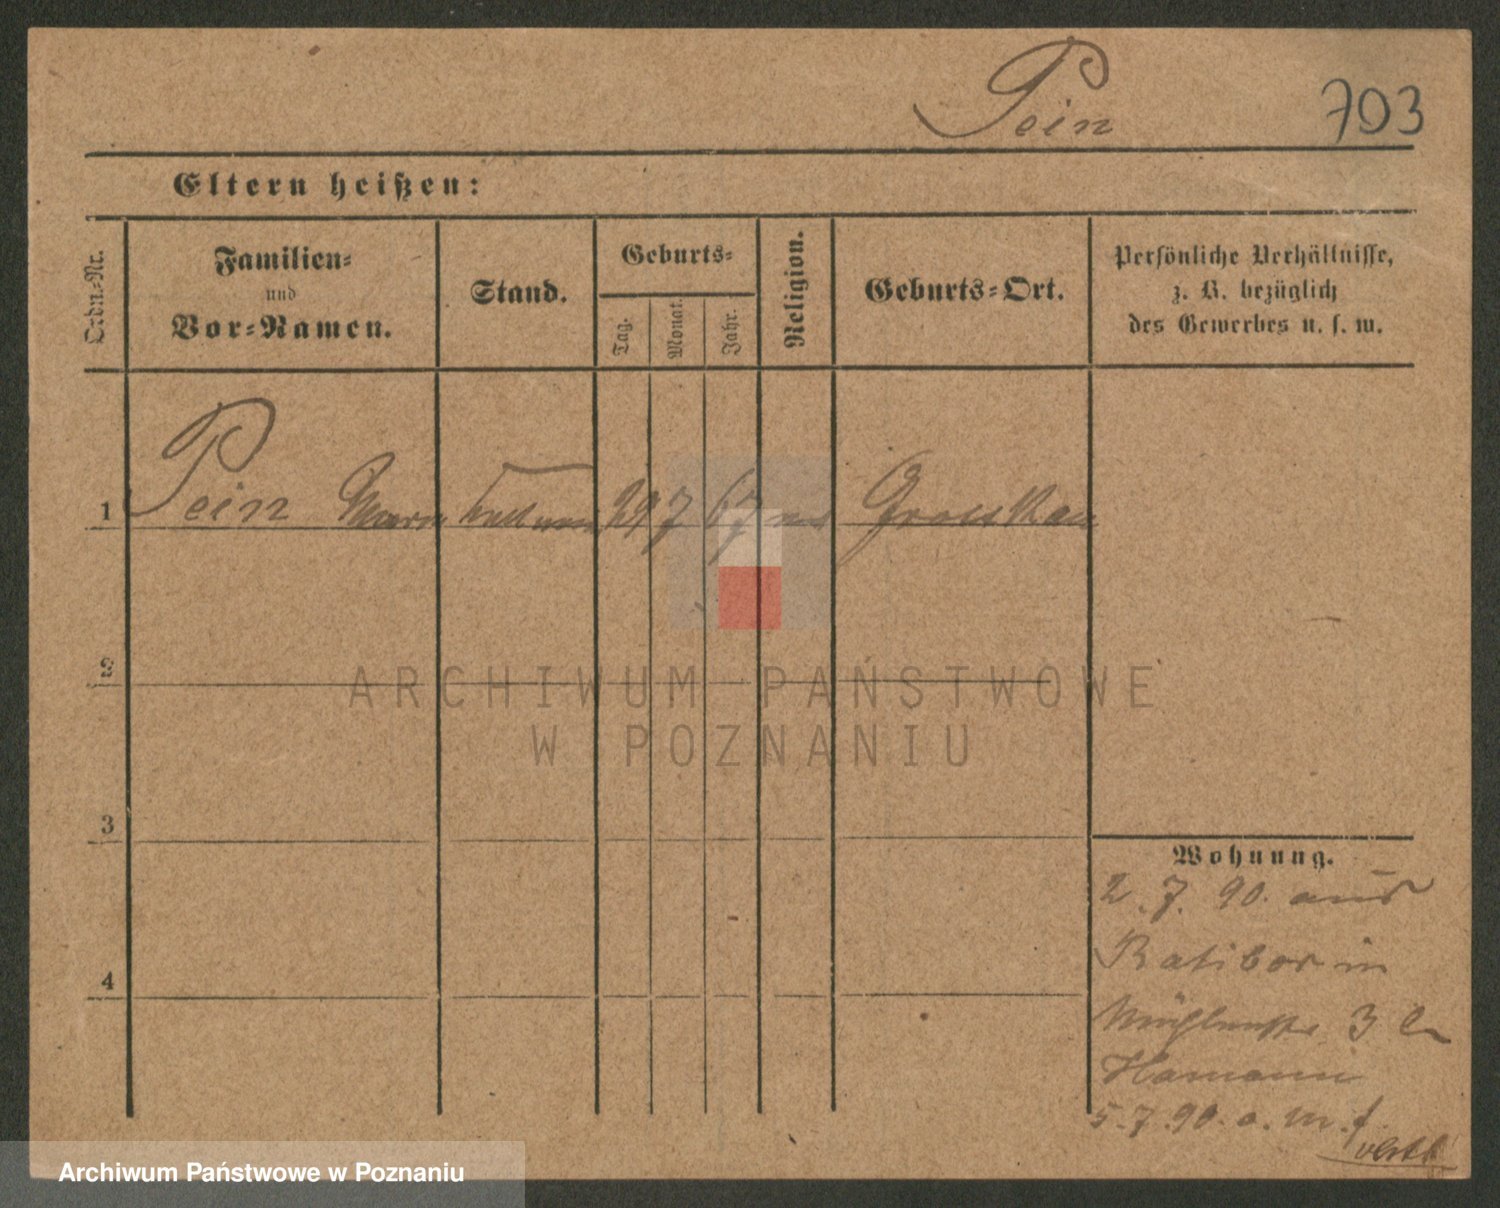 Pein
703
Eltern heißen:
Ordn.-Nr.
Familien-
und
Vor-Namen.
Stand.
Geburts-
Tag.
Monat.
Jahr.
Religion.
Geburts-Ort.
Persönliche Verhältnisse,
z. B. bezüglich
des Gewerbes u. s. w.
1 Pein 29 7 67
2
ARCHIWUM PAŃSTWOWE
W POZNANIU
3
4
Wohnung.
2. 7. 90. aus
Ratibor in
3
Hamann
5. 7. 90.
Archiwum Państwowe w Poznaniu